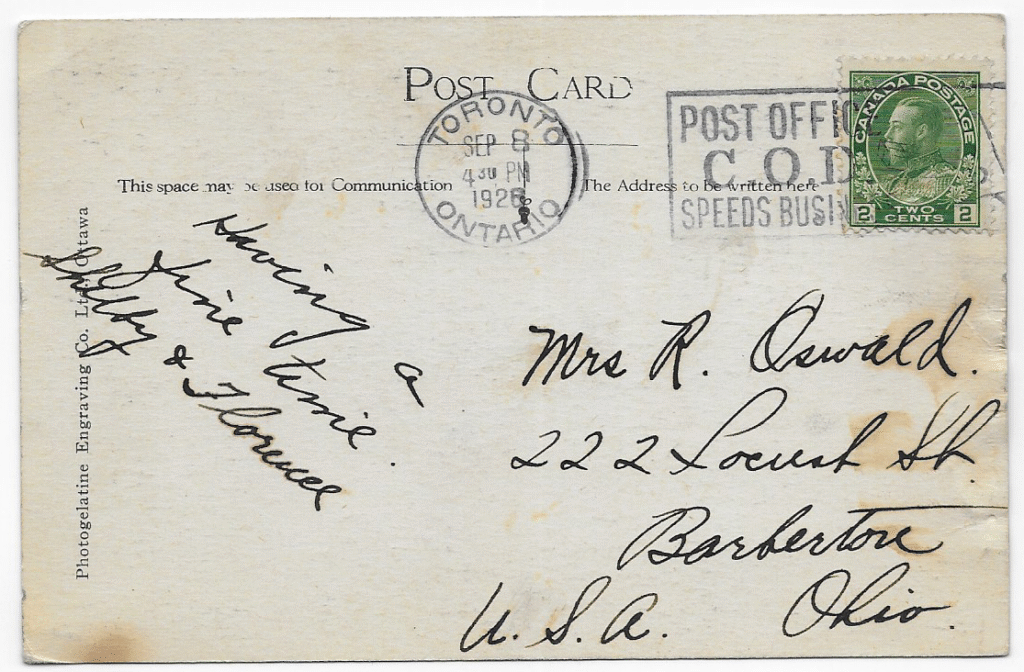 POST CARD
TORONTO
SEP 8
4 30 PM
192
ONTARIO
POST OFFIC
C.O.D.
SPEEDS BUSIN
CANADA POSTAGE
2 TWO CENTS 2
This space may be used for Communication
The Address to be written here
Photogelatine Engraving Co. Ltd., Ottawa
Having a
fine time.
Shelby & Florence
Mrs R. Oswald.
222 Locust St.
Barberton
Ohio.
U. S. A.